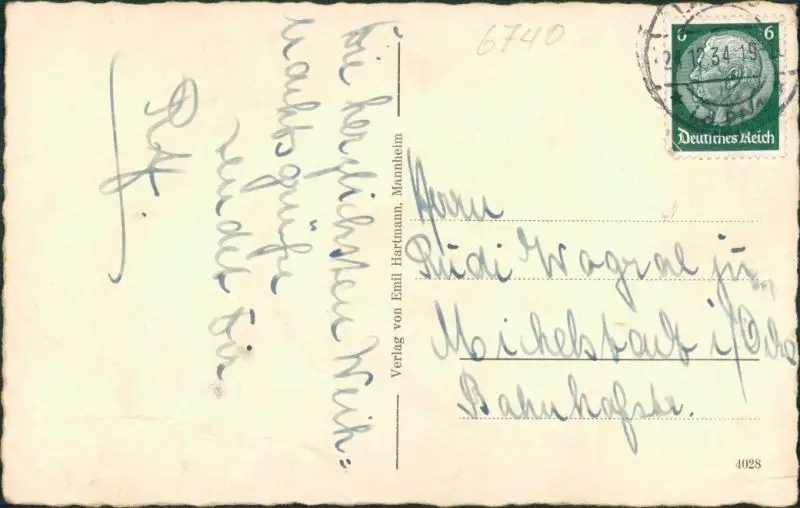 Die herzlichsten Weih=
nachtsgrüße
sendet Dir
6740
Verlag von Emil Hartmann, Mannheim
6 6
24.12.34.19
Deutsches Reich
Herrn
Rudi Wogral jun.
Michelstadt i/
Bahnhofstr.
4028